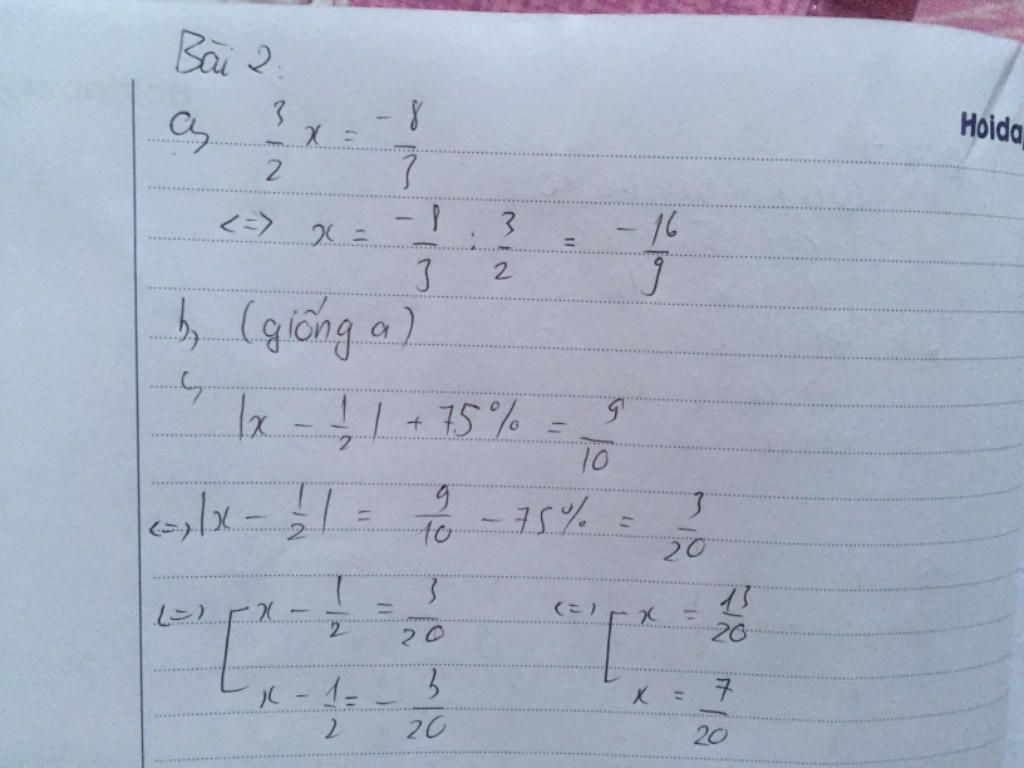 Bài 2:
Hoida
a, 3/2 x = -8/3
<=> x = -8/3 : 3/2 = -16/9
b, (giống a)
c,
|x - 1/2| + 75% = 9/10
<=> |x - 1/2| = 9/10 - 75% = 3/20
<=> [ x - 1/2 = 3/20 <=> [ x = 13/20
x - 1/2 = - 3/20 x = 7/20